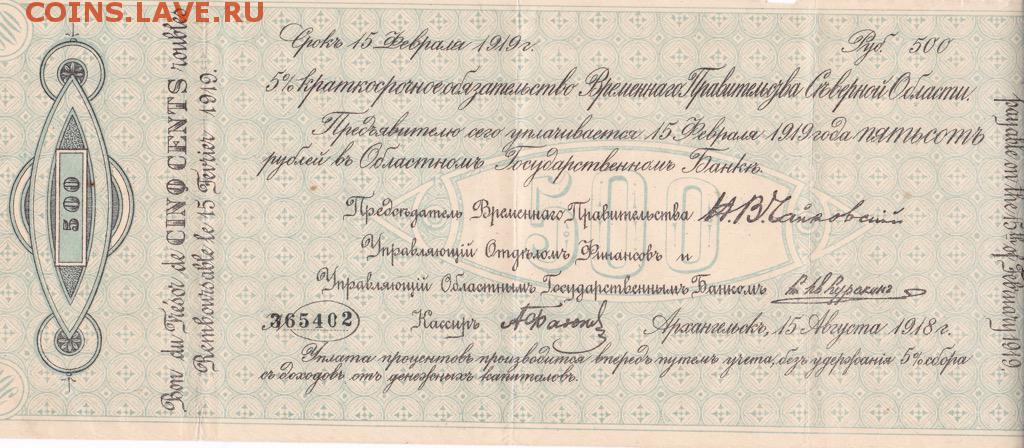 COINS.LAVE.RU
Срокъ 15 Февраля 1919 г.
Руб. 500
5% краткосрочное обязательство Временнаго Правительства Сѣверной Области.
Предъявителю сего уплачивается 15 Февраля 1919 года пятьсотъ
рублей въ Областномъ Государственномъ Банкѣ.
500
Предсѣдатель Временнаго Правительства Н.В.Чайковскій
Управляющій Отдѣломъ Финансовъ и
Управляющій Областнымъ Государственнымъ Банкомъ
365402
Кассиръ
Архангельскъ, 15 Августа 1918 г.
Уплата процентовъ производится впередъ путемъ учета, безъ удержанія 5% сбора
съ доходовъ отъ денежныхъ капиталовъ.
500
Bon du Trésor de CINQ CENTS roubles
Remboursable le 15 Février 1919.
payable on the 15th of February 1919,